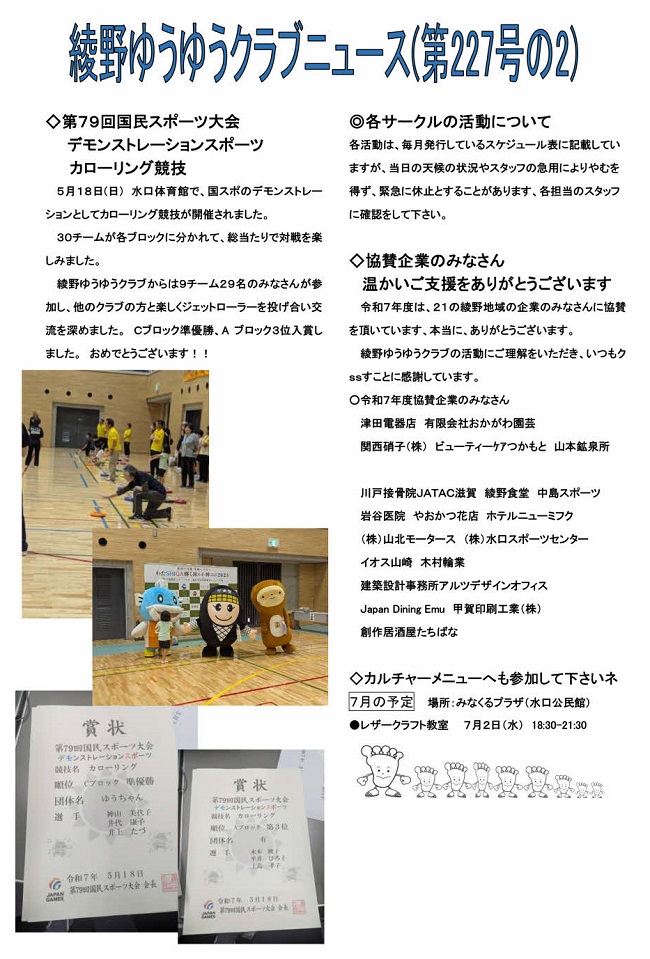 綾野ゆうゆうクラブニュース(第227号の2)
◇第79回国民スポーツ大会
デモンストレーションスポーツ
カローリング競技
5月18日(日) 水口体育館で、国スポのデモンストレー
ションとしてカローリング競技が開催されました。
30チームが各ブロックに分かれて、総当たりで対戦を楽
しみました。
綾野ゆうゆうクラブからは9チーム29名のみなさんが参
加し、他のクラブの方と楽しくジェットローラーを投げ合い交
流を深めました。 Cブロック準優勝、A ブロック3位入賞し
ました。 おめでとうございます!!
賞状
第79回国民スポーツ大会
デモンストレーションスポーツ
競技名 カローリング
順位 Cブロック 準優勝
団体名 ゆうちゃん
選手
令和7年 5月18日
第79回国民スポーツ大会 会長
JAPAN
GAMES
賞状
第79回国民スポーツ大会
デモンストレーションスポーツ
競技名 カローリング
順位 第3位
団体名
選手
令和7年 5月18日
第79回国民スポーツ大会 会長
JAPAN
GAMES
◎各サークルの活動について
各活動は、毎月発行しているスケジュール表に記載してい
ますが、当日の天候の状況やスタッフの急用によりやむを
得ず、緊急に休止とすることがあります、各担当のスタッフ
に確認をして下さい。
◇協賛企業のみなさん
温かいご支援をありがとうございます
令和7年度は、21の綾野地域の企業のみなさんに協賛
を頂いています、本当に、ありがとうございます。
綾野ゆうゆうクラブの活動にご理解をいただき、いつもク
ssすことに感謝しています。
〇令和7年度協賛企業のみなさん
津田電器店 有限会社おかがわ園芸
関西硝子(株) ビューティーケアつかもと 山本鉱泉所
川戸接骨院JATAC滋賀 綾野食堂 中島スポーツ
岩谷医院 やおかつ花店 ホテルニューミフク
(株)山北モータース (株)水口スポーツセンター
イオス山崎 木村輪業
建築設計事務所アルツデザインオフィス
Japan Dining Emu 甲賀印刷工業(株)
創作居酒屋たちばな
◇カルチャーメニューへも参加して下さいネ
7月の予定 場所:みなくるプラザ(水口公民館)
●レザークラフト教室 7月2日(水) 18:30-21:30